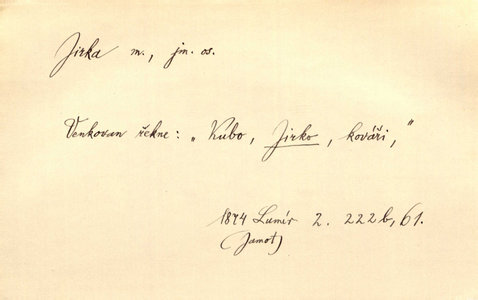 Jirka m., jm. os.
Venkovan řekne: „Kubo, Jirko, kováři,"
1874 Lumír 2. 222b, 61.
(Jamot)